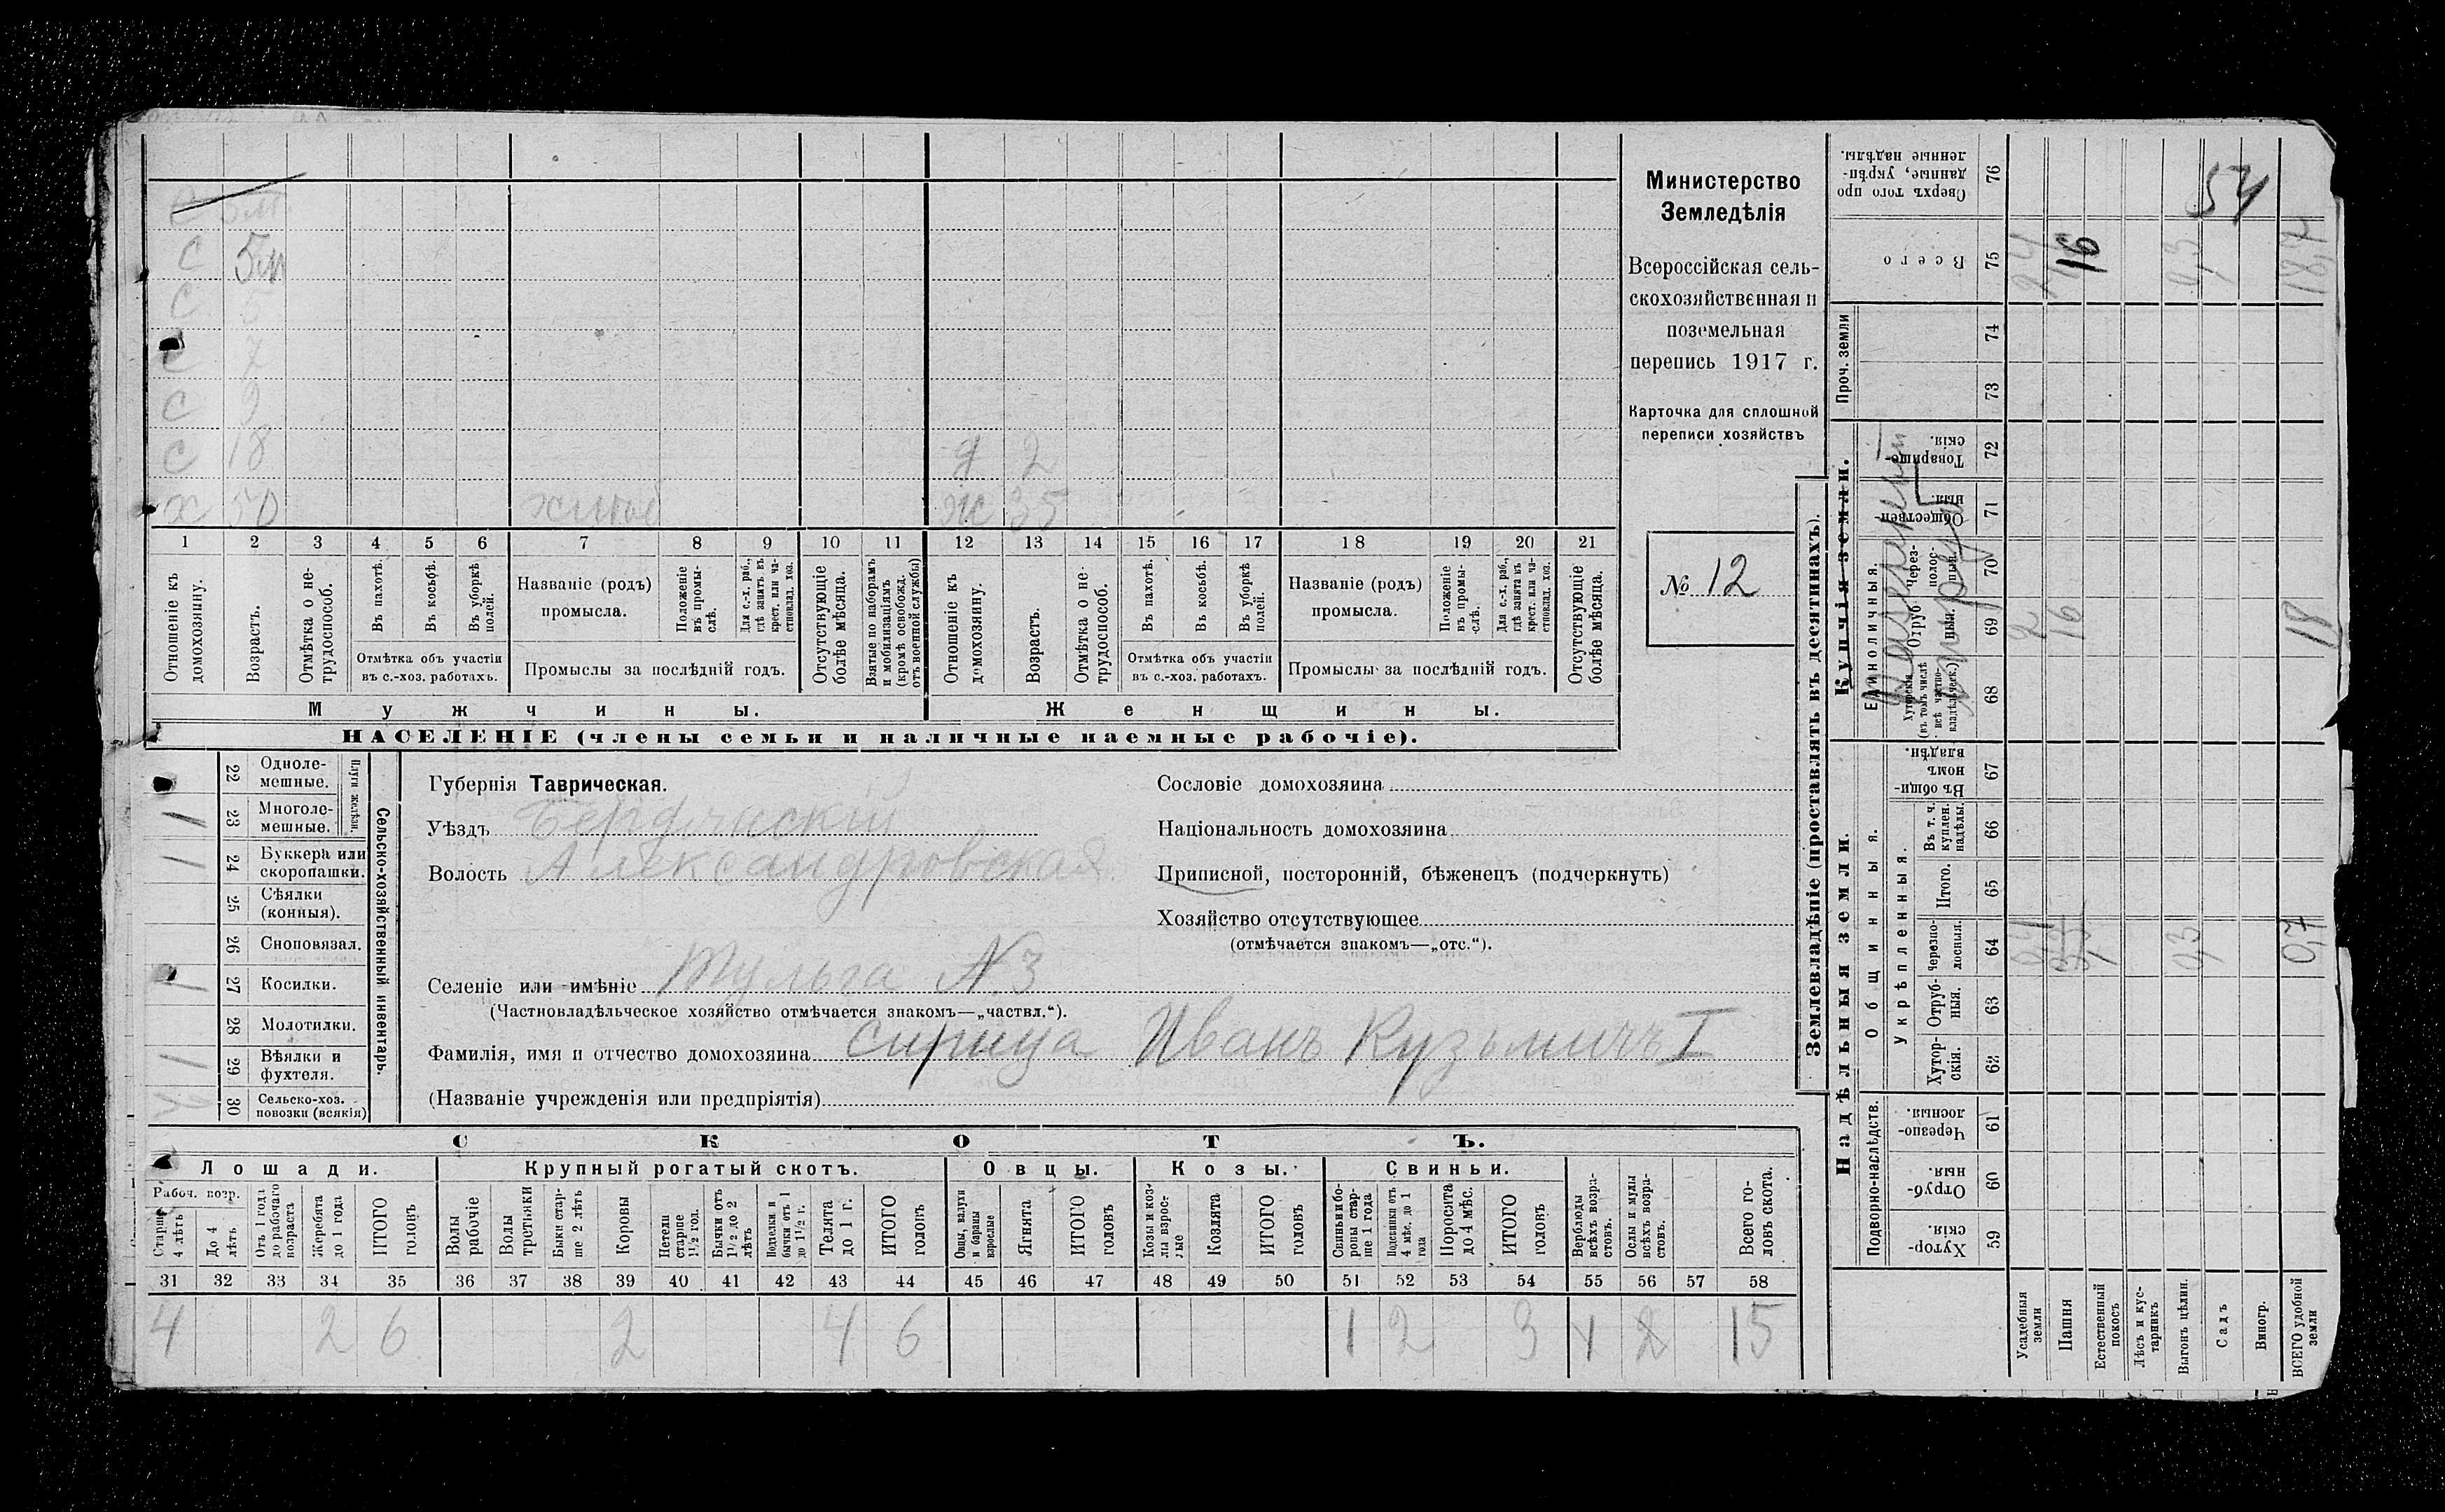 С 5м
С 5
С 7
С 9
С 18 д 2
х 50 ж 35
1 2 3 4 5 6 7 8 9 10 11 12 13 14 15 16 17 18 19 20 21
Отношеніе къ домохозяину.
Возрастъ.
Отмѣтка о не-
трудоспособ.
Въ пахотѣ.
Въ косьбѣ.
Въ уборкѣ полей.
Отмѣтка объ участіи
въ с.-хоз. работахъ.
Названіе (родъ)
промысла.
Положеніе въ промы-
слѣ.
Для с.-х. раб., гдѣ занятъ въ крест. или ча-
стновлад. хоз.
Промыслы за послѣдній годъ.
Отсутствующіе болѣе мѣсяца.
Взятые по наборамъ и мобилизаціямъ (кромѣ освобожд. отъ военной службы)
Отношеніе къ домохозяину.
Возрастъ.
Отмѣтка о не-
трудоспособ.
Въ пахотѣ.
Въ косьбѣ.
Въ уборкѣ полей.
Отмѣтка объ участіи
въ с.-хоз. работахъ.
Названіе (родъ)
промысла.
Положеніе въ промы-
слѣ.
Для с.-х. раб., гдѣ занята въ крест. или ча-
стновлад. хоз.
Промыслы за послѣдній годъ.
Отсутствующіе болѣе мѣсяца.
Мужчины. Женщины.
НАСЕЛЕНІЕ (члены семьи и наличные наемные рабочіе).
Министерство
Земледѣлія
Всероссійская сель-
скохозяйственная и
поземельная
перепись 1917 г.
Карточка для сплошной
переписи хозяйствъ
№ 12
Сельско-хозяйственный инвентарь.
Плуги желѣзн.
22 Одноле-
мешные.
1 23 Многоле-
мешные.
1 24 Буккера или
скоропашки.
25 Сѣялки
(конныя).
26 Сноповязал.
1 27 Косилки.
28 Молотилки.
1 29 Вѣялки и
фухтеля.
30 Сельско-хоз.
повозки (всякія)
Губернія Таврическая.
Уѣздъ Бердянскій
Волость Александровская
Селеніе или имѣніе Тульга №3
(Частновладѣльческое хозяйство отмѣчается знакомъ—„частвл.“).
Фамилія, имя и отчество домохозяина Сирица Иванъ Кузьмичъ I
(Названіе учрежденія или предпріятія)
Сословіе домохозяина
Національность домохозяина
Приписной, посторонній, бѣженецъ (подчеркнуть)
Хозяйство отсутствующее
(отмѣчается знакомъ—„отс.“).
СКОТЪ.
Лошади. Крупный рогатый скотъ. Овцы. Козы. Свиньи.
Рабоч. возр.
Старше 4 лѣтъ
До 4 лѣтъ
Отъ 1 года до рабочаго возраста
Жеребята до 1 года
ИТОГО головъ
Волы рабочіе
Волы третьяки
Быки стар-
ше 2 лѣтъ
Коровы
Нетели старше 1½ год.
Бычки отъ 1½ до 2 лѣтъ
Подтелки и бычки отъ 1 до 1½ г.
Телята до 1 г.
ИТОГО головъ
Овцы, валухи и бараны взрослые
Ягнята
ИТОГО головъ
Козы и коз-
лы взрос-
лые
Козлята
ИТОГО головъ
Свиньи и бо-
ровы стар-
ше 1 года
Подсвинки отъ 4 мѣс. до 1 года
Поросята до 4 мѣс.
ИТОГО головъ
Верблюды всѣхъ возра-
стовъ.
Ослы и мулы всѣхъ возра-
стовъ.
Всего го-
ловъ скота.
31 32 33 34 35 36 37 38 39 40 41 42 43 44 45 46 47 48 49 50 51 52 53 54 55 56 57 58
4 2 6 2 4 6 1 2 3 15
Землевладѣніе (проставлять въ десятинахъ).
Надѣльныя земли.
Купчія земли.
Проч. земли
Подворно-наслѣдств.
Общинныя.
Укрѣпленныя.
Единоличныя.
Хутор-
скія. 59
Отруб-
ныя. 60
Черезпо-
лосныя. 61
Хутор-
скія. 62
Отруб-
ныя. 63
Черезпо-
лосныя. 64
Итого. 65
Въ т. ч. куплен. надѣлы. 66
Въ общи-
номъ владѣн. 67
Хуторскія (въ томъ числѣ всѣ частно-
владѣльческ.) 68
Отруб-
ныя. 69
Через-
полос-
ныя. 70
Обществен-
ныя. 71
Товарище-
скія. 72
73
74
Всего 75
Сверхъ того про
данные, укрѣп-
ленные надѣлы. 76
Усадебныя земли
Пашня
Естественный покосъ
Лѣсъ и кус-
тарникъ
Выгонъ цѣлин.
Садъ
Виногр.
ВСЕГО удобной земли
2 16 18
0,7
16 18,7
54